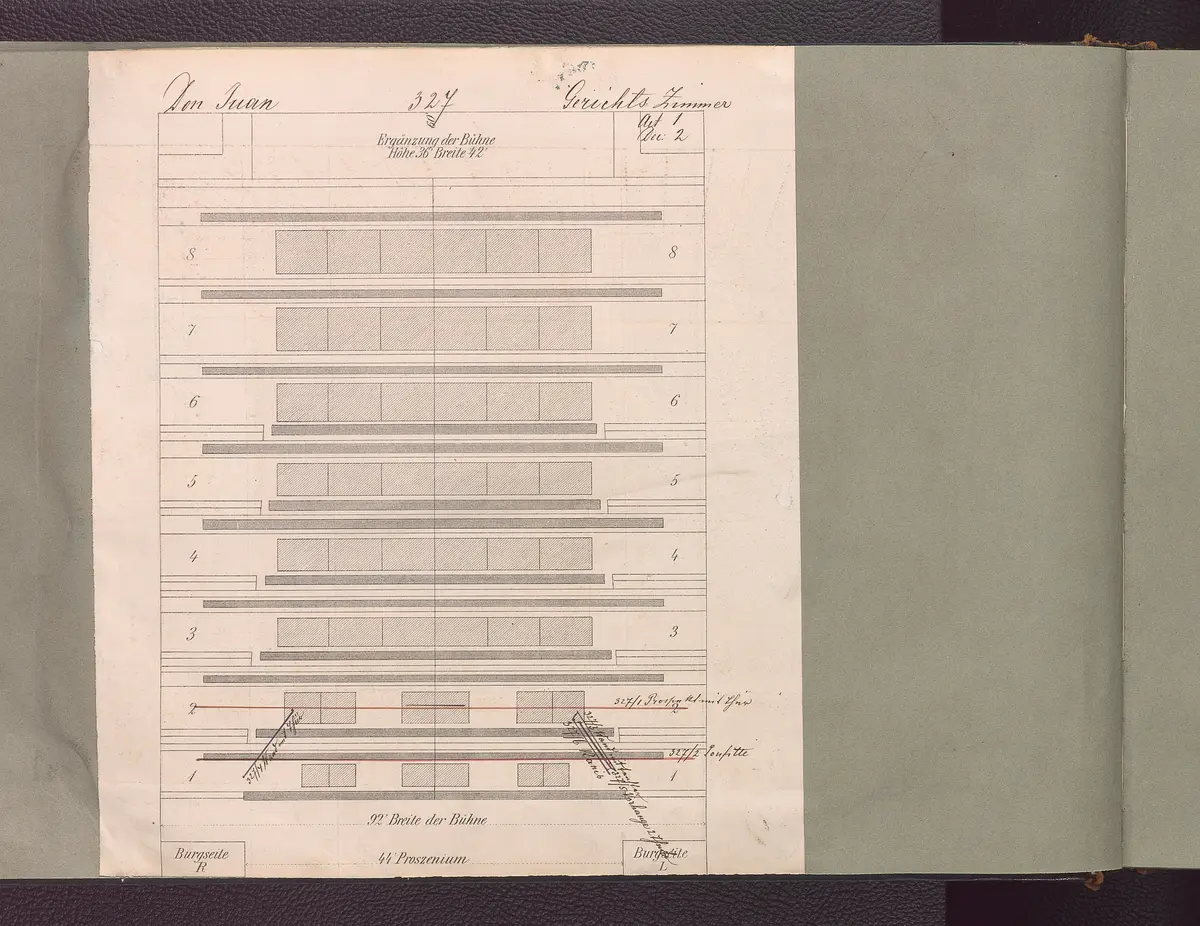 Don Juan
327
Gerichts Zimmer
Act 1
Dec: 2
Ergänzung der Bühne
Höhe 36' Breite 42'
8 8
7 7
6 6
5 5
4 4
3 3
2 2
327/1 Prospekt mit Thür
327/4 Wand mit Thür
327/3 Wand mit
327/6
327/5 Vorhänge 2
327/2 Soufitte
1 1
92' Breite der Bühne
44' Proszenium
Burgseite
R
Burgseite
L